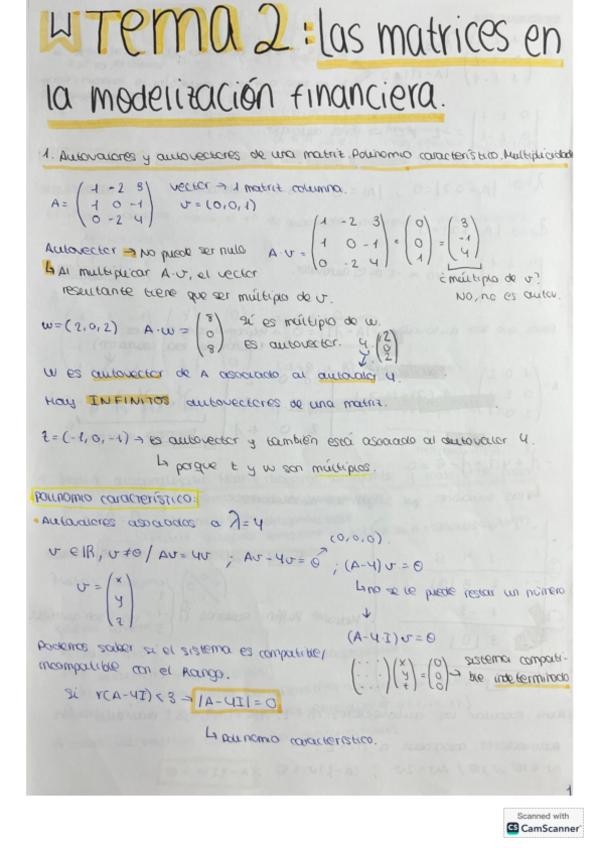 TEMA 2: las matrices en
la modelización financiera.
1. Autovalores y autovectores de una matriz. Polinomio característico. Multiplicidad
A = ( 1 -2 3 / 1 0 -1 / 0 -2 4 ) vector → 1 matriz columna. v = (0,0,1)
Autovector → No puede ser nulo A·v = ( 1 -2 3 / 1 0 -1 / 0 -2 4 ) · ( 0 / 0 / 1 ) = ( 3 / -1 / 4 )
↳ Al multiplicar A·v, el vector
resultante tiene que ser múltiplo de v.
¿múltiplo de v?
NO, no es autov.
w = (2,0,2) A·w = ( 8 / 0 / 8 ) sí es múltiplo de w.
es autovector. 4 · ( 2 / 0 / 2 )
w es autovector de A asociado al autovalor 4.
Hay INFINITOS autovectores de una matriz.
z = (-1,0,-1) → es autovector y también está asociado al autovalor 4.
↳ porque z y w son múltiplos.
Polinomio característico:
• Autovalores asociados a λ = 4
(0,0,0)
v ∈ IR, v ≠ θ / Av = 4v ; Av - 4v = θ ; (A-4)v = θ
v = ( x / y / z )
↳ no se le puede restar un número
↓
(A-4I)v = θ
Podemos saber si el sistema es compatible/
incompatible con el Rango.
( · · · / · · · ) ( x / y / z ) = ( 0 / 0 / 0 ) → sistema compati-
ble indeterminado
Si r(A-4I) < 3 → |A-4I| = 0
↳ Polinomio característico.
1
Scanned with
CS CamScanner